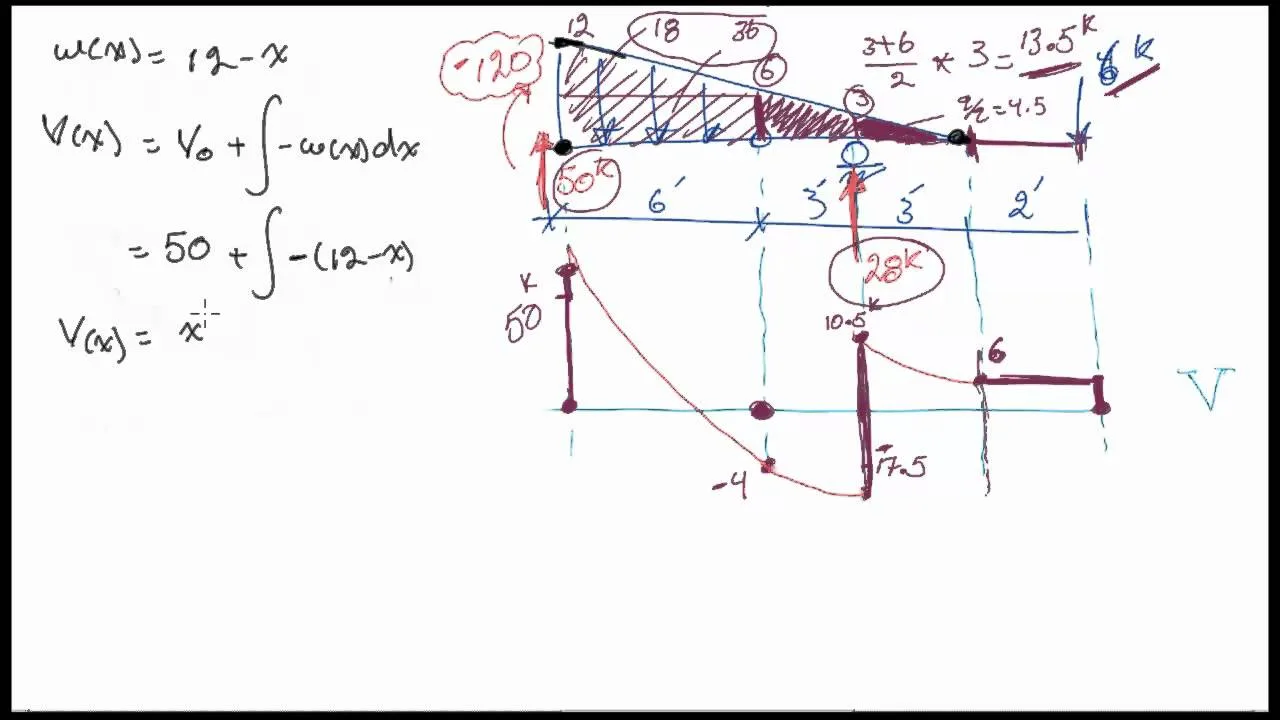 w(x) = 12 - x
V(x) = V₀ + ∫ -w(x)dx
= 50 + ∫ -(12 - x)
V(x) = x
12 18 36
3+6/2 * 3 = 13.5ᵏ
6ᵏ
-120
6
3
9/2 = 4.5
50ᵏ
6' 3' 3' 2'
28ᵏ
50ᵏ
10.5ᵏ
6
V
-4
-17.5